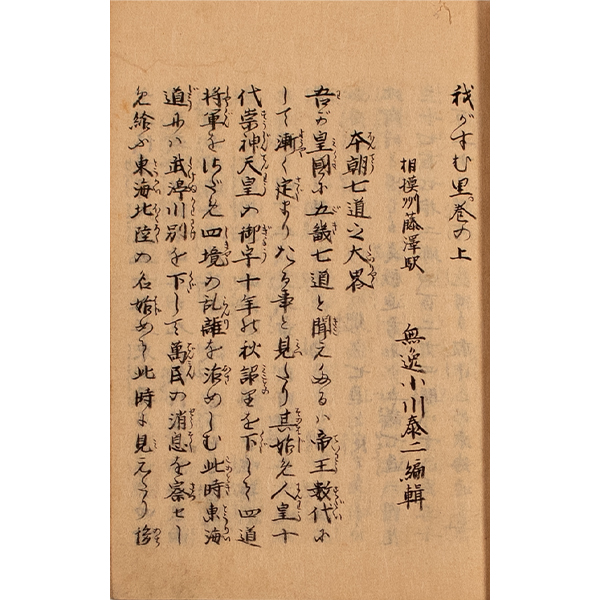 我がすむ里巻の上
相摸州藤澤駅 無逸小川泰二編輯
本朝七道之大畧
吾が皇國に五畿七道と聞えぬるハ帝王数代に
して漸く定まりたる事と見えたり其始を人皇十
代崇神天皇の御宇十年の秋詔を下して四道
将軍を以て四境の乱離を治めしむ此時東海
道にハ武渟川別を下して萬民の消息を察せし
め給ふ東海北陸の名始めて此時に見えたり後